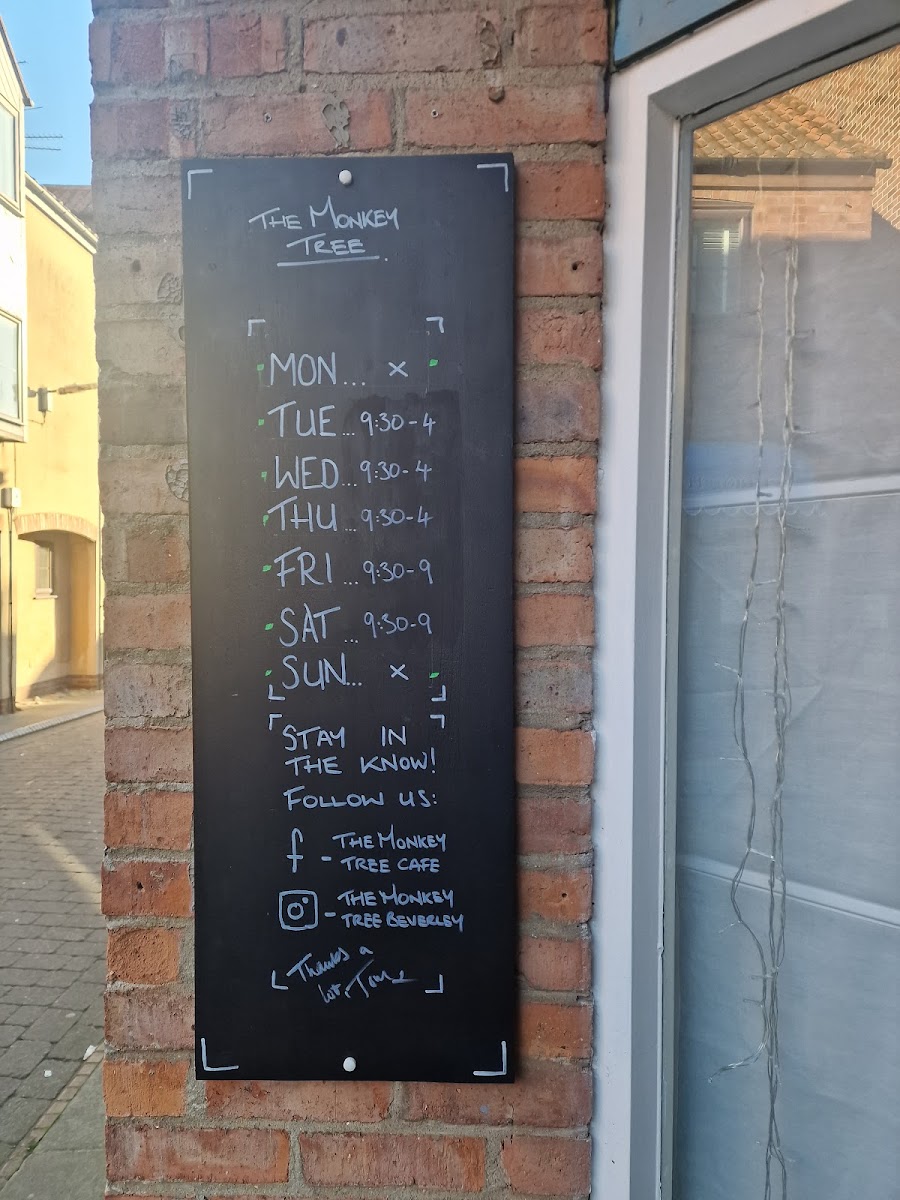 THE MONKEY
TREE.
MON... X
TUE... 9:30-4
WED... 9:30-4
THU... 9:30-4
FRI... 9:30-9
SAT... 9:30-9
SUN... X
STAY IN
THE KNOW!
FOLLOW US:
f - THE MONKEY
TREE CAFE
- THE MONKEY
TREE BEVERLEY
Thanks a
lot,